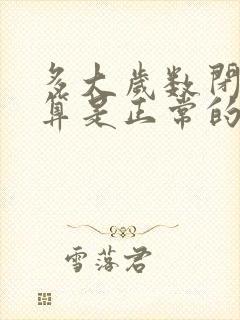 多大岁数闭
算是正常的
雪落君